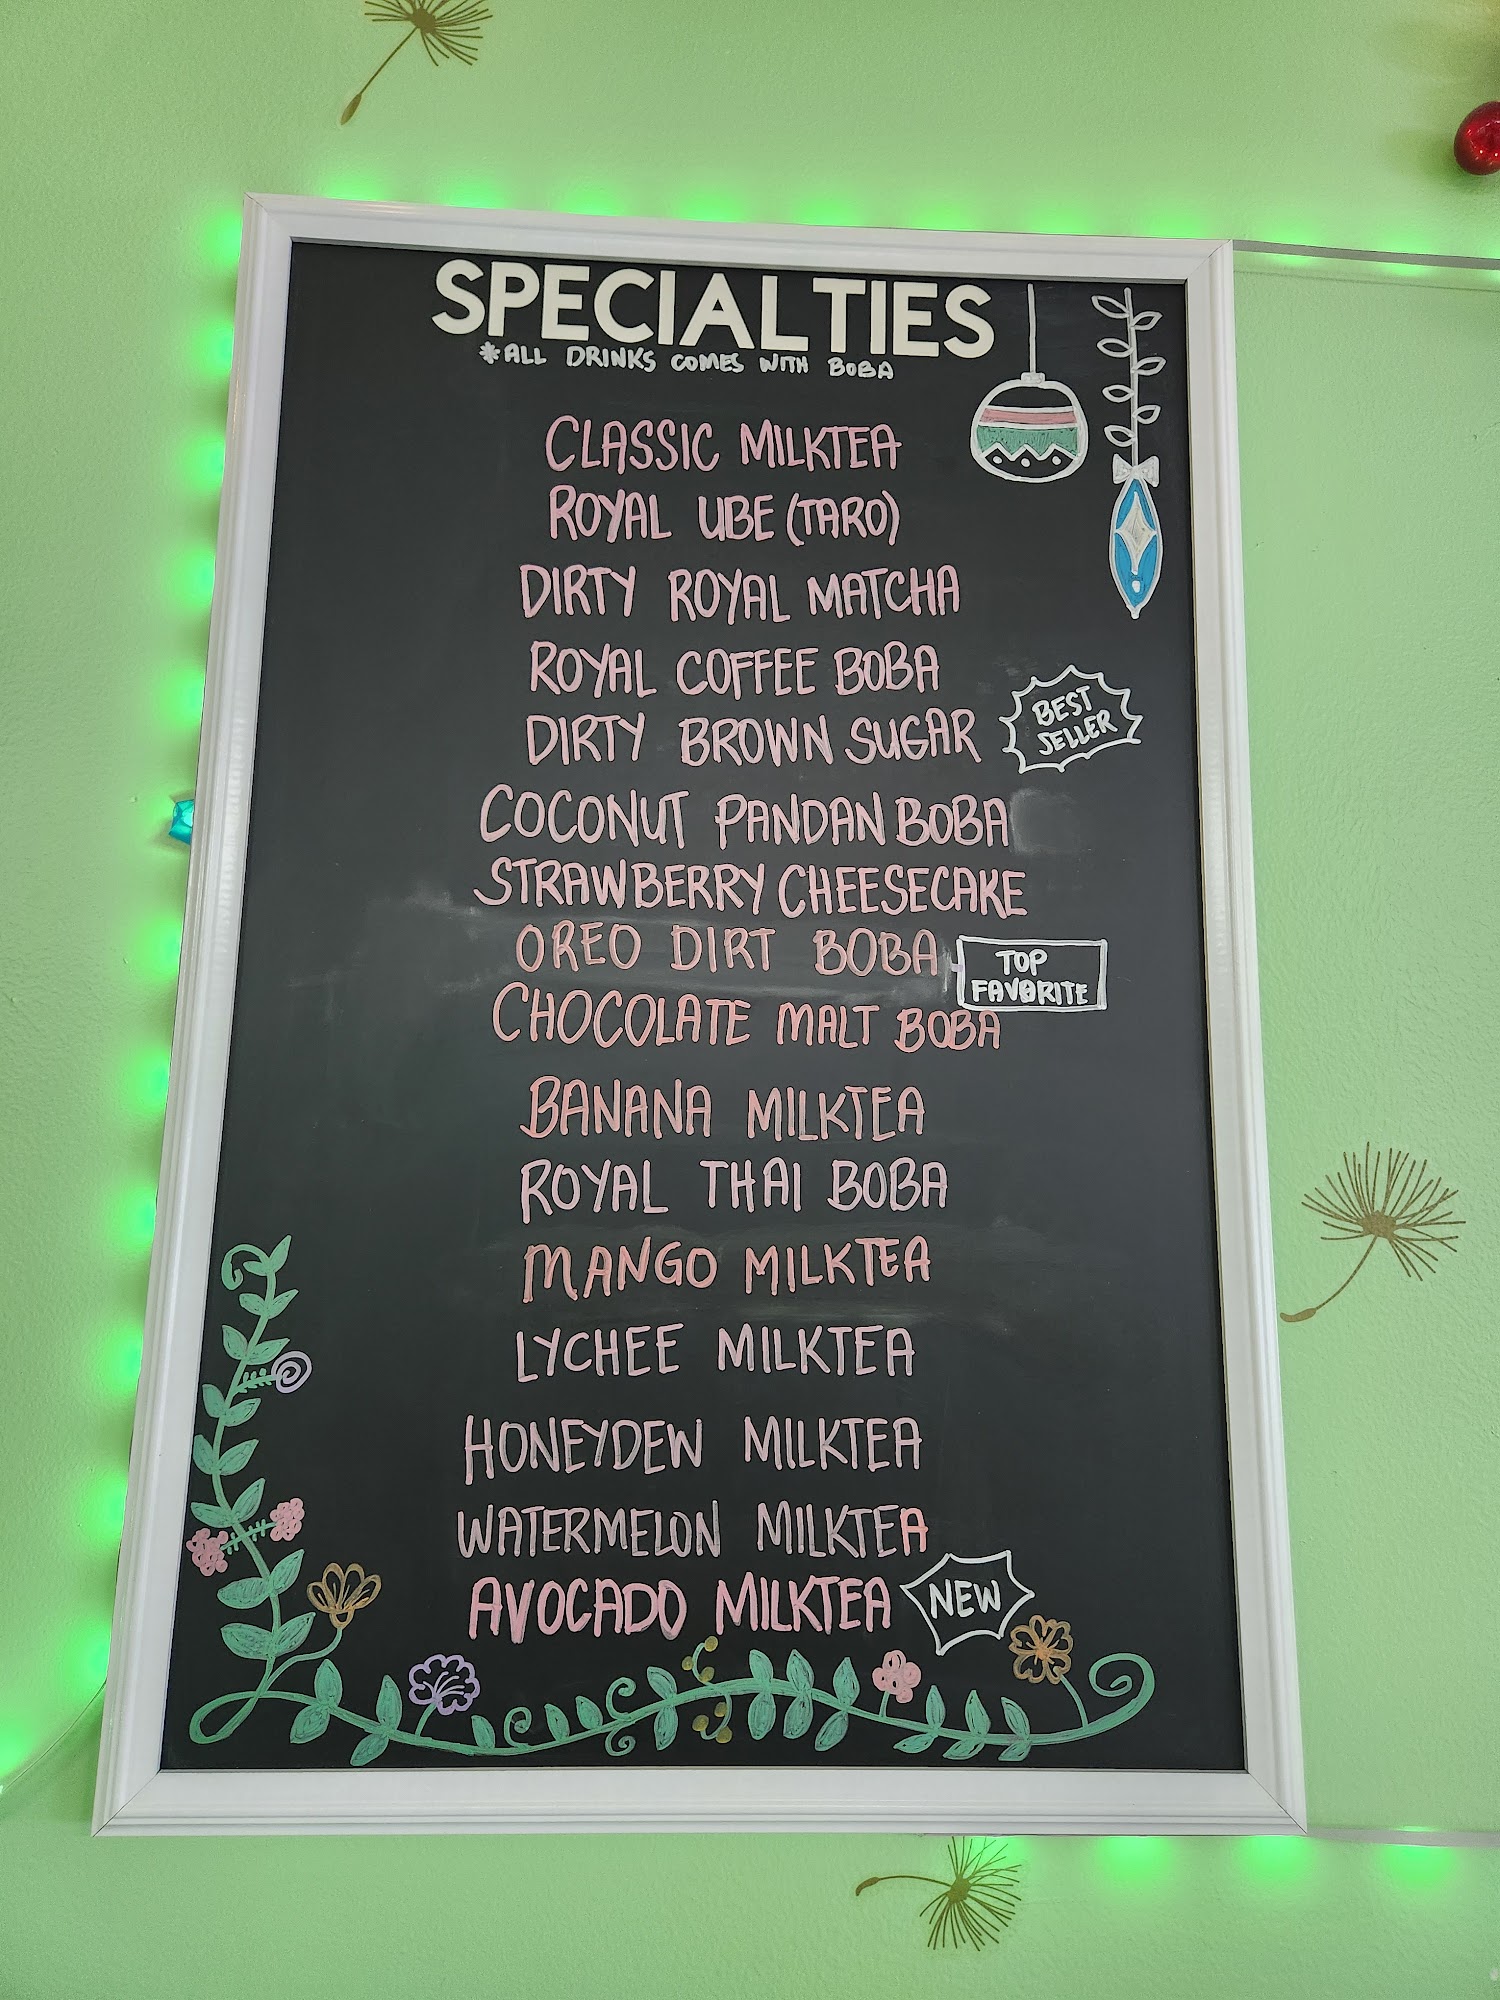 SPECIALTIES
*ALL DRINKS COMES WITH BOBA
CLASSIC MILKTEA
ROYAL UBE (TARO)
DIRTY ROYAL MATCHA
ROYAL COFFEE BOBA
DIRTY BROWN SUGAR
BEST
SELLER
COCONUT PANDAN BOBA
STRAWBERRY CHEESECAKE
OREO DIRT BOBA
TOP
FAVORITE
CHOCOLATE MALT BOBA
BANANA MILKTEA
ROYAL THAI BOBA
MANGO MILKTEA
LYCHEE MILKTEA
HONEYDEW MILKTEA
WATERMELON MILKTEA
AVOCADO MILKTEA
NEW